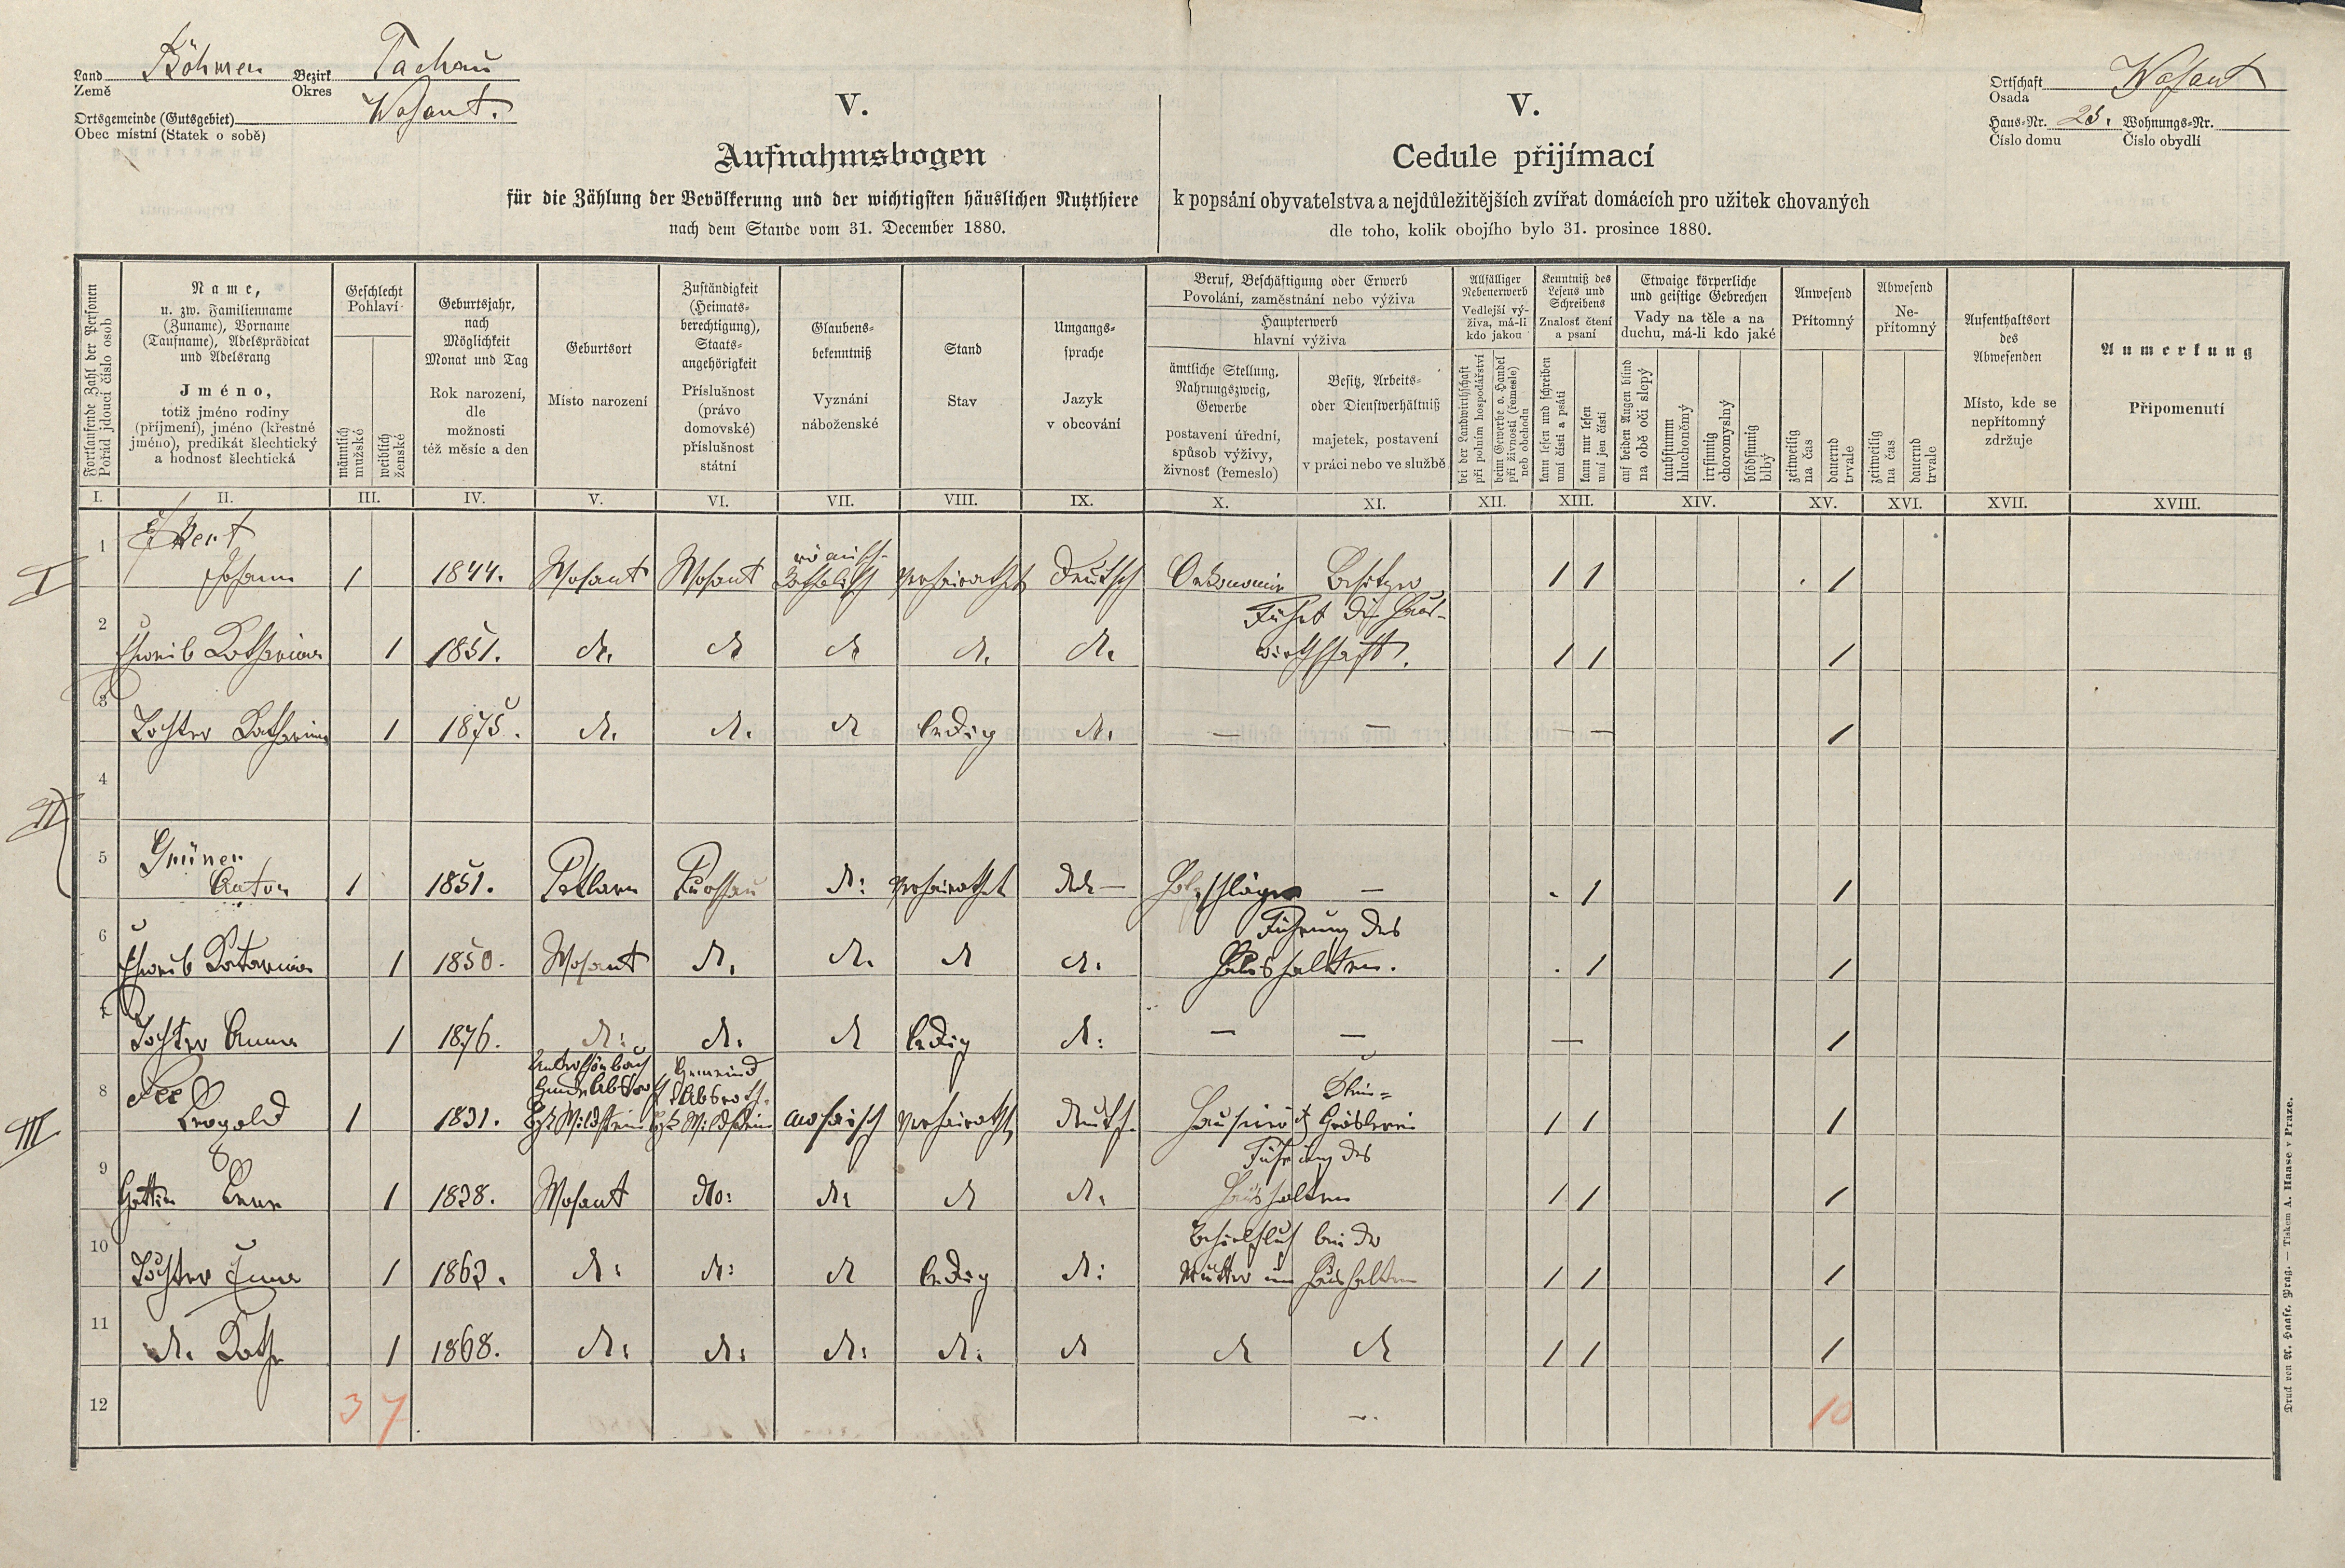 Land Böhmen Bezirk Tachau
Země Okres
Ortsgemeinde (Gutsgebiet) Wosant.
Obec místní (Statek o sobě)
V.
Aufnahmsbogen
für die Zählung der Bevölkerung und der wichtigsten häuslichen Nutzthiere
nach dem Stande vom 31. December 1880.
V.
Cedule přijímací
k popsání obyvatelstva a nejdůležitějších zvířat domácích pro užitek chovaných
dle toho, kolik obojího bylo 31. prosince 1880.
Ortschaft Wosant
Osada
Haus-Nr. 25. Wohnungs-Nr.
Číslo domu Číslo obydlí
Fortlaufende Zahl der Personen
Pořád jdoucí číslo osob
Name,
u. zw. Familienname
(Zuname), Vorname
(Taufname), Adelsprädicat
und Adelsrang
Jméno,
totiž jméno rodiny
(příjmení), jméno (křestné
jméno), predikát šlechtický
a hodnosť šlechtická
Geschlecht
Pohlaví
männlich
mužské
weiblich
ženské
Geburtsjahr,
nach
Möglichkeit
Monat und Tag
Rok narození,
dle
možnosti
též měsíc a den
Geburtsort
Místo narození
Zuständigkeit
(Heimats-
berechtigung),
Staats-
angehörigkeit
Příslušnost
(právo
domovské)
příslušnost
státní
Glaubens-
bekenntniß
Vyznání
náboženské
Stand
Stav
Umgangs-
sprache
Jazyk
v obcování
Beruf, Beschäftigung oder Erwerb
Povolání, zaměstnání nebo výživa
Haupterwerb
hlavní výživa
ämtliche Stellung,
Nahrungszweig,
Gewerbe
postavení úřední,
spůsob výživy,
živnosť (řemeslo)
Besitz, Arbeits-
oder Dienstverhältniß
majetek, postavení
v práci nebo ve službě
Allfälliger
Nebenerwerb
Vedlejší vý-
živa, má-li
kdo jakou
bei der Landwirthschaft
při polním hospodářství
beim Gewerbe o. Handel
při živnosti (řemesle)
neb obchodu
Kenntniß des
Lesens und
Schreibens
Znalosť čtení
a psaní
kann lesen und schreiben
umí čísti a psáti
kann nur lesen
umí jen čísti
Etwaige körperliche
und geistige Gebrechen
Vady na těle a na
duchu, má-li kdo jaké
auf beiden Augen blind
na obě oči slepý
taubstumm
hluchoněmý
irrsinnig
choromyslný
blödsinnig
blbý
Anwesend
Přítomný
zeitweilig
na čas
dauernd
trvale
Abwesend
Ne-
přítomný
zeitweilig
na čas
dauernd
trvale
Aufenthaltsort
des
Abwesenden
Místo, kde se
nepřítomný
zdržuje
Anmerkung
Připomenutí
I. II. III. IV. V. VI. VII. VIII. IX. X. XI. XII. XIII. XIV. XV. XVI. XVII. XVIII.
I
1
Johann 1 1844. Wosant Wosant römisch-
katholisch verheirathet Deutsch Oekonomie Besitzer 1 1 1
2 Führt die Haus-
Eheweib Katharina 1 1851. d. d d d. d. wirthschaft. 1 1 1
3
Tochter Katharina 1 1875. d. d. d ledig d. — — — — 1
4
II
5 Grüner
Anton 1 1851. d: verheirathet Holzschläger — 1 1
6 Führung des
Eheweib Katarina 1 1850. Wosant d. d. d d. Haushaltens. 1 1
7
Tochter Anna 1 1876. d: d. d ledig d: — — — 1
III
8
Leopold 1 1831. mosaisch verheirathet deutsch 1 1 1
9 Führung des
Gattin 1 1828. Wosant dto: d: d d. Haushaltens 1 1 1
10 Behilflich bei der
Tochter 1 1862. d: d: d ledig d: Mutter im Haushalten 1 1 1
11
d. Kath 1 1868. d: d: d: d: d d d 1 1 1
12 3 7 10
Druck von A. Haase, Prag. — Tiskem A. Haase v Praze.